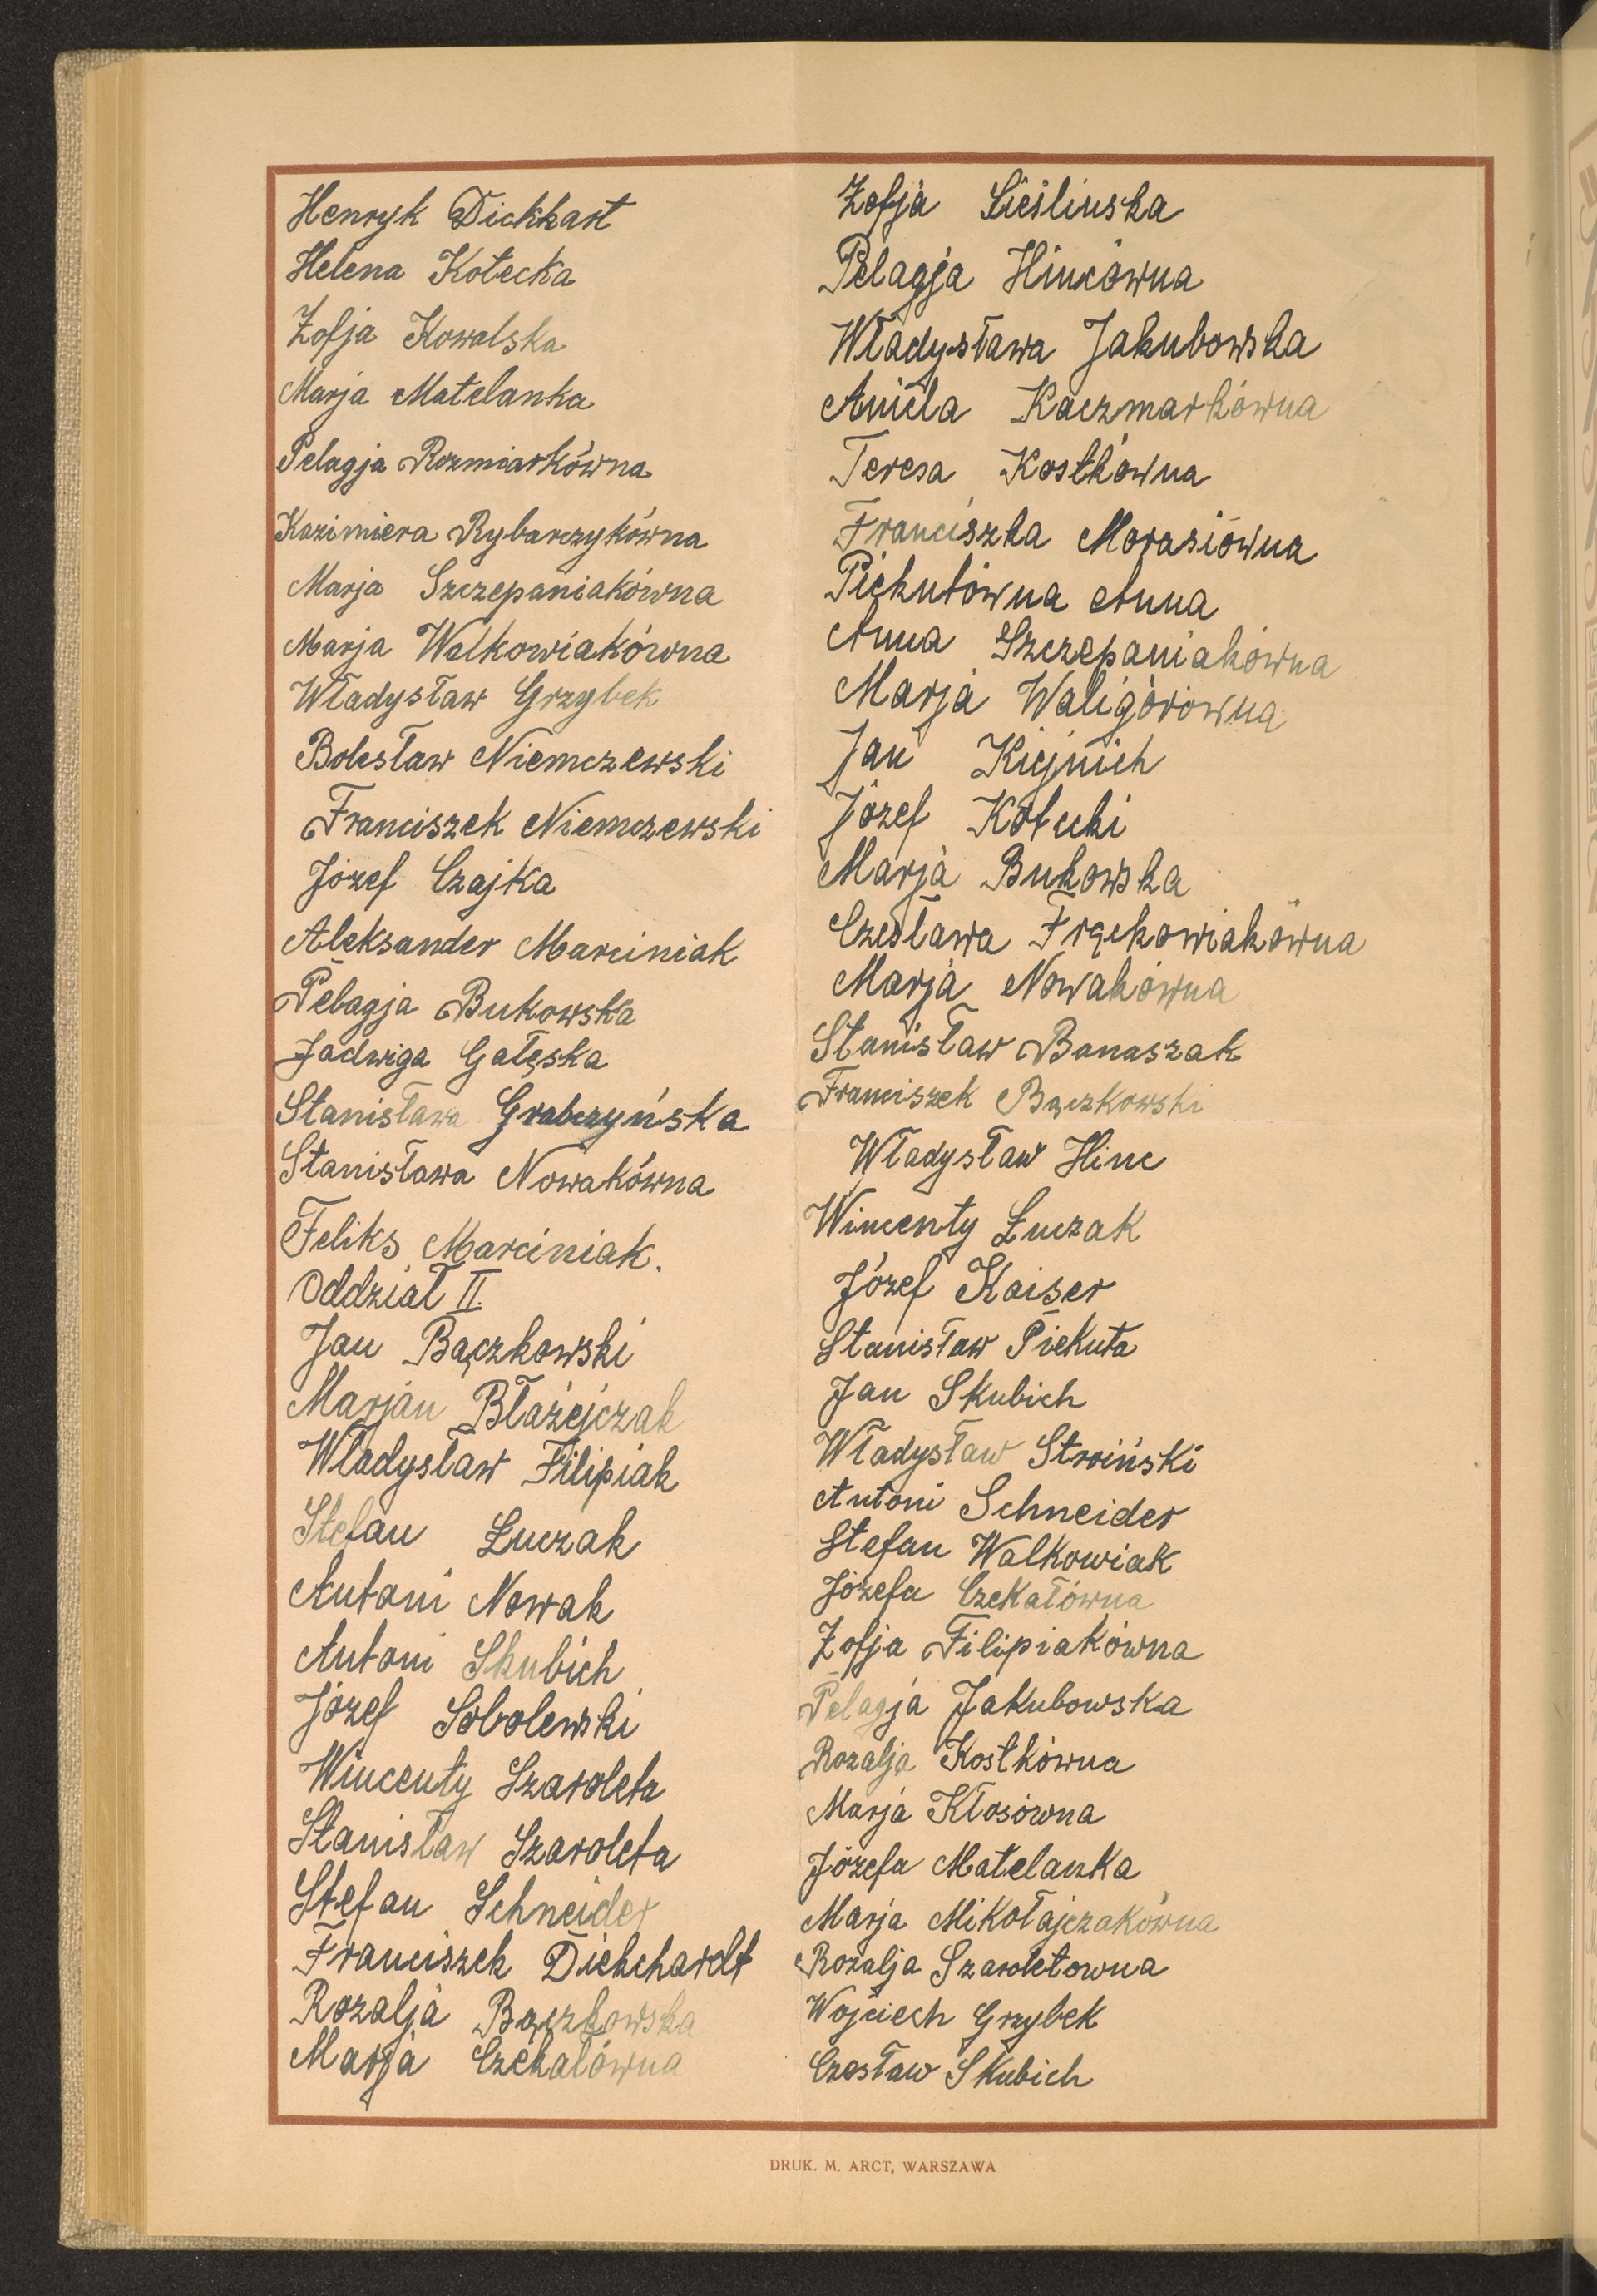 Henryk Dickhart
Helena Kotecka
Zofja Kowalska
Marja Matelanka
Pelagja Rozmiarkówna
Kazimiera Rybarczykówna
Marja Szczepaniakówna
Marja Walkowiakówna
Władysław Grzybek
Bolesław Niemczewski
Franciszek Niemczewski
Józef Czajka
Aleksander Marciniak
Pelagja Bukowska
Jadwiga Gałęska
Stanisława Grabczyńska
Stanisława Nowakówna
Feliks Marciniak.
Oddział II.
Jan Bączkowski
Marjan Błażejczak
Władysław Filipiak
Stefan Łuczak
Antoni Nowak
Antoni Skubich
Józef Sobolewski
Wincenty Szaroleta
Stanisław Szaroleta
Stefan Schneider
Franciszek Diekchardt
Rozalja Bączkowska
Marja Czekałówna
Zofja Sieślinska
Pelagja Hincówna
Władysława Jakubowska
Aniela Kaczmarkówna
Teresa Kostkówna
Franciszka Morasiówna
Piekutówna Anna
Anna Szczepaniakówna
Marja Waligórowna
Jan Kiejnich
Józef Kotecki
Marja Bukowska
Czesława Frąckowiakówna
Marja Nowakówna
Stanisław Banaszak
Franciszek Bączkowski
Władysław Hinc
Wincenty Łuczak
Józef Kaiser
Stanisław Piekuta
Jan Skubich
Władysław Stroiński
Antoni Schneider
Stefan Walkowiak
Józefa Czekałówna
Zofja Filipiakówna
Pelagja Jakubowska
Rozalja Kostkówna
Marja Kłosówna
Józefa Matelanka
Marja Mikołajczakówna
Rozalja Szaroletowna
Wojciech Grzybek
Czesław Skubich
DRUK. M. ARCT, WARSZAWA